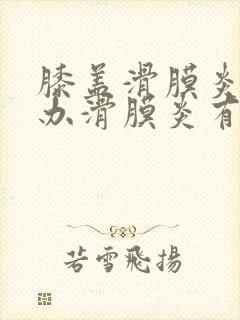 膝盖滑膜炎
办滑膜炎有
若雪飛揚